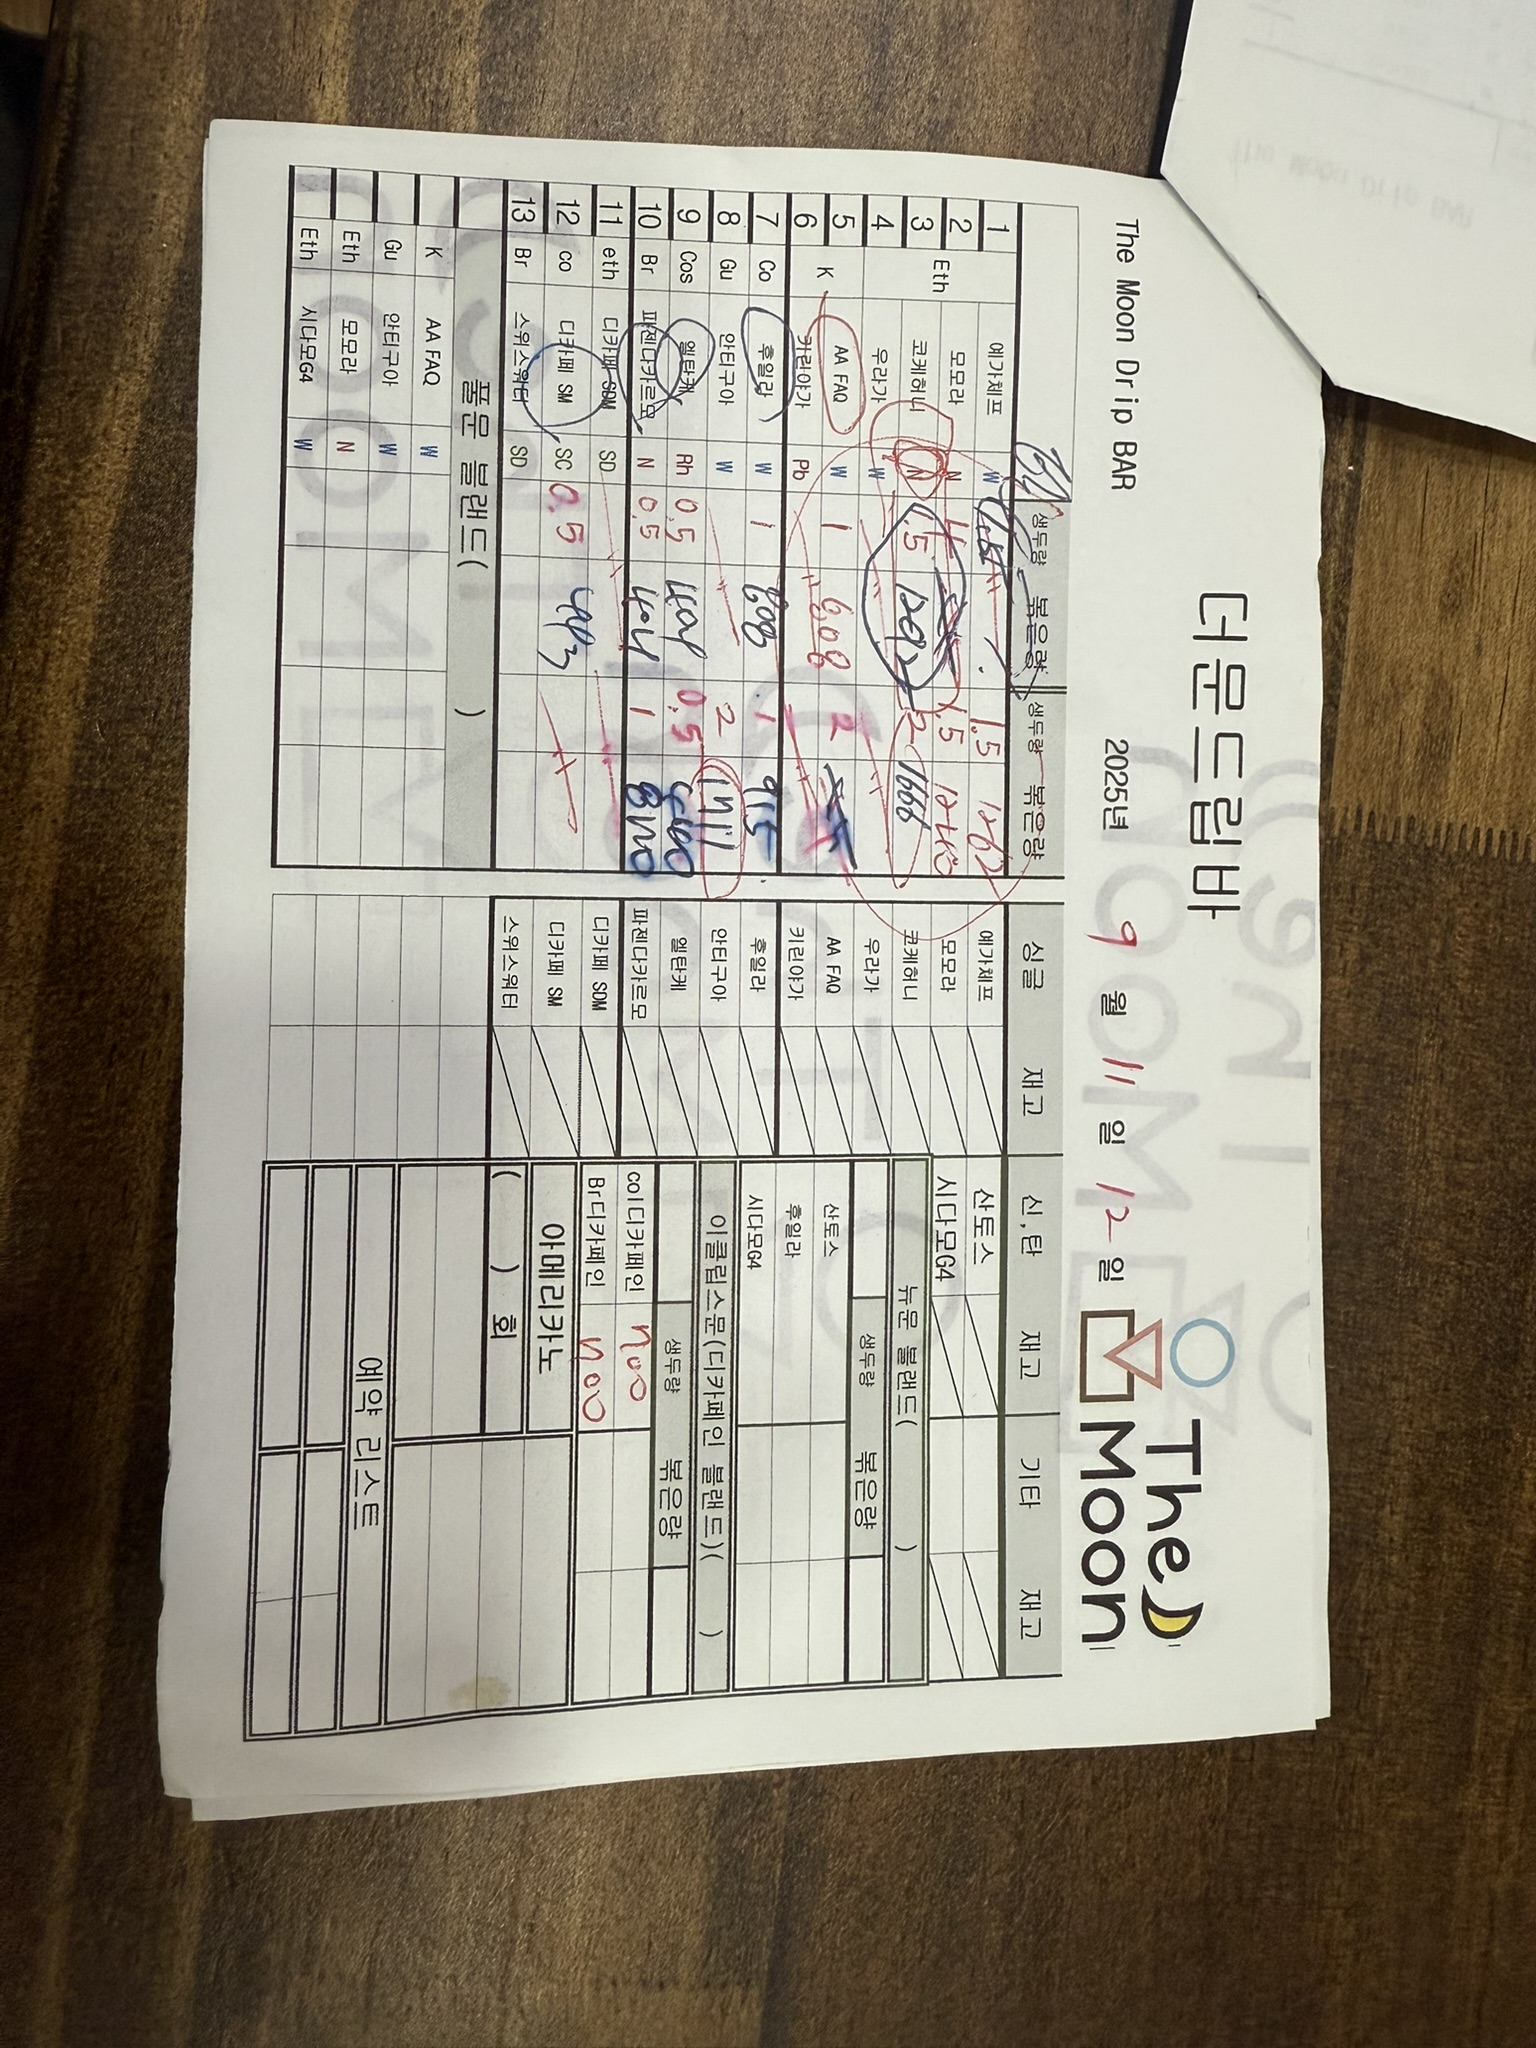 더문드립바
The Moon
The Moon Drip BAR 2025년 9 월 11 일 12 일
생두량 볶은량 생두량 볶은량
1 Eth 예가체프 W 1.5 1.5 1262
2 모모라 N 1.5 1240
3 코케허니 N 1.5 1292 2 1666
4 우라가 W
5 K AA FAQ W 1 808 2
6 키린야가 Pb
7 Co 후일라 W 1 808 1 915
8 Gu 안티구아 W 2 1711
9 Cos 엘탄케 Rh 0.5 404 0.5 440
10 Br 파젠다카르모 N 0.5 404 1 870
11 eth 디카페 SDM SD
12 co 디카페 SM SC 0.5 443
13 Br 스위스워터 SD
풀문 블랜드( )
K AA FAQ W
Gu 안티구아 W
Eth 모모라 N
Eth 시다모G4 W
싱글 재고
예가체프
모모라
코케허니
우라가
AA FAQ
키린야가
후일라
안티구아
엘탄케
파젠다카르모
디카페 SDM
디카페 SM
스위스워터
신,탄 재고 기타 재고
산토스
시다모G4
뉴문 블랜드( )
생두량 볶은량
산토스
후일라
시다모G4
이클립스문(디카페인 블랜드)( )
생두량 볶은량
col디카페인 n00
Br디카페인 n00
아메리카노
( ) 회
예약 리스트